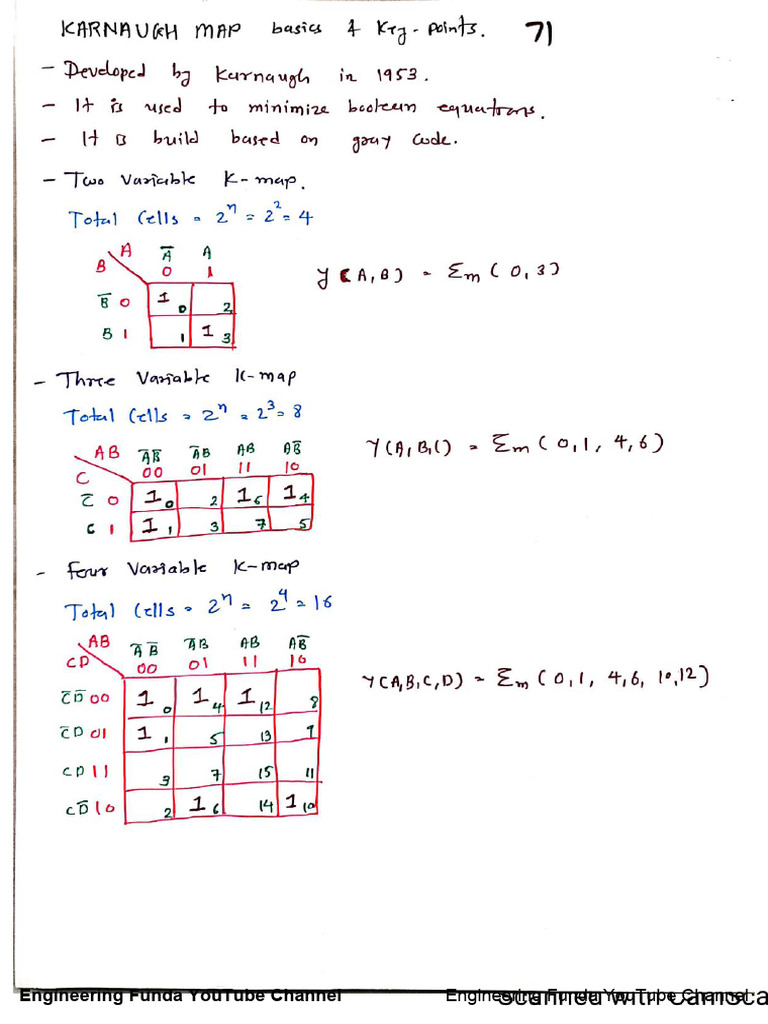 KARNAUGH MAP basics & Key-points. 71
- Developed by Karnaugh in 1953.
- It is used to minimize boolean equations.
- It is build based on gray code.
- Two Variable K-map.
Total Cells = 2ⁿ = 2² = 4
A A̅ A
B 0 1
B̅ 0 1 0 2
B 1 1 1 3
Y(A,B) = Σm (0,3)
- Three Variable K-map
Total Cells = 2ⁿ = 2³ = 8
AB A̅B̅ A̅B AB AB̅
C 00 01 11 10
C̅ 0 1 0 2 1 6 1 4
C 1 1 1 3 7 5
Y(A,B,C) = Σm (0,1,4,6)
- Four Variable K-map
Total Cells = 2ⁿ = 2⁴ = 16
AB A̅B̅ A̅B AB AB̅
CD 00 01 11 10
C̅D̅ 00 1 0 1 4 1 12 8
C̅D 01 1 1 5 13 9
CD 11 3 7 15 11
CD̅ 10 2 1 6 14 1 10
Y(A,B,C,D) = Σm (0,1,4,6,10,12)
Engineering Funda YouTube Channel Engineering Funda YouTube Channel
Scanned with CamSca